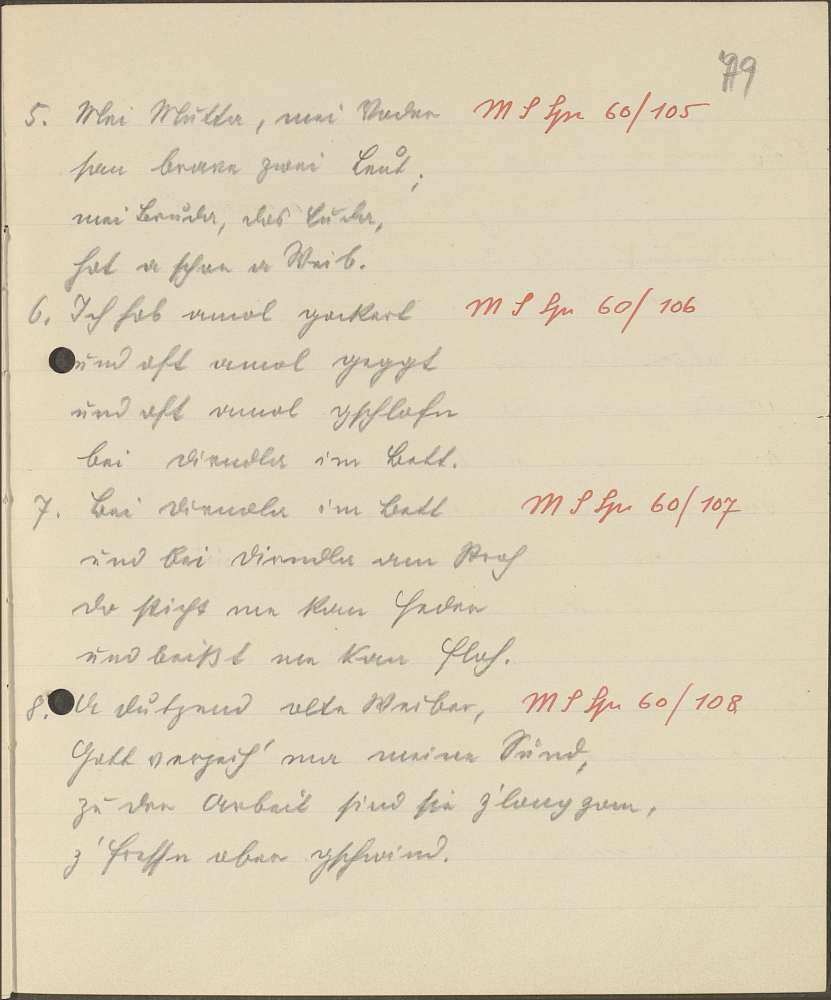 79
5. Mei Mutta, mei Voder M S Spr 60/105
san brave zwei Leut,
mei Bruda, das Luda,
hot a schon a Weib.
6. Ich hob amol gackert M S Spr 60/106
und oft amol geggt
und oft amol gschlofn
bei Dirndla im Bett.
7. Bei Dirndla im Bett M S Spr 60/107
und bei Dirndla am Stroh
do sticht me kan Feder
und beißt me kan Floh.
8. A Dutzend olte Weiber, M S Spr 60/108
Gott verzeih' ma meine Sünd,
zu der Arbeit sind sie z'longzom,
z' fressn ober gschwind.